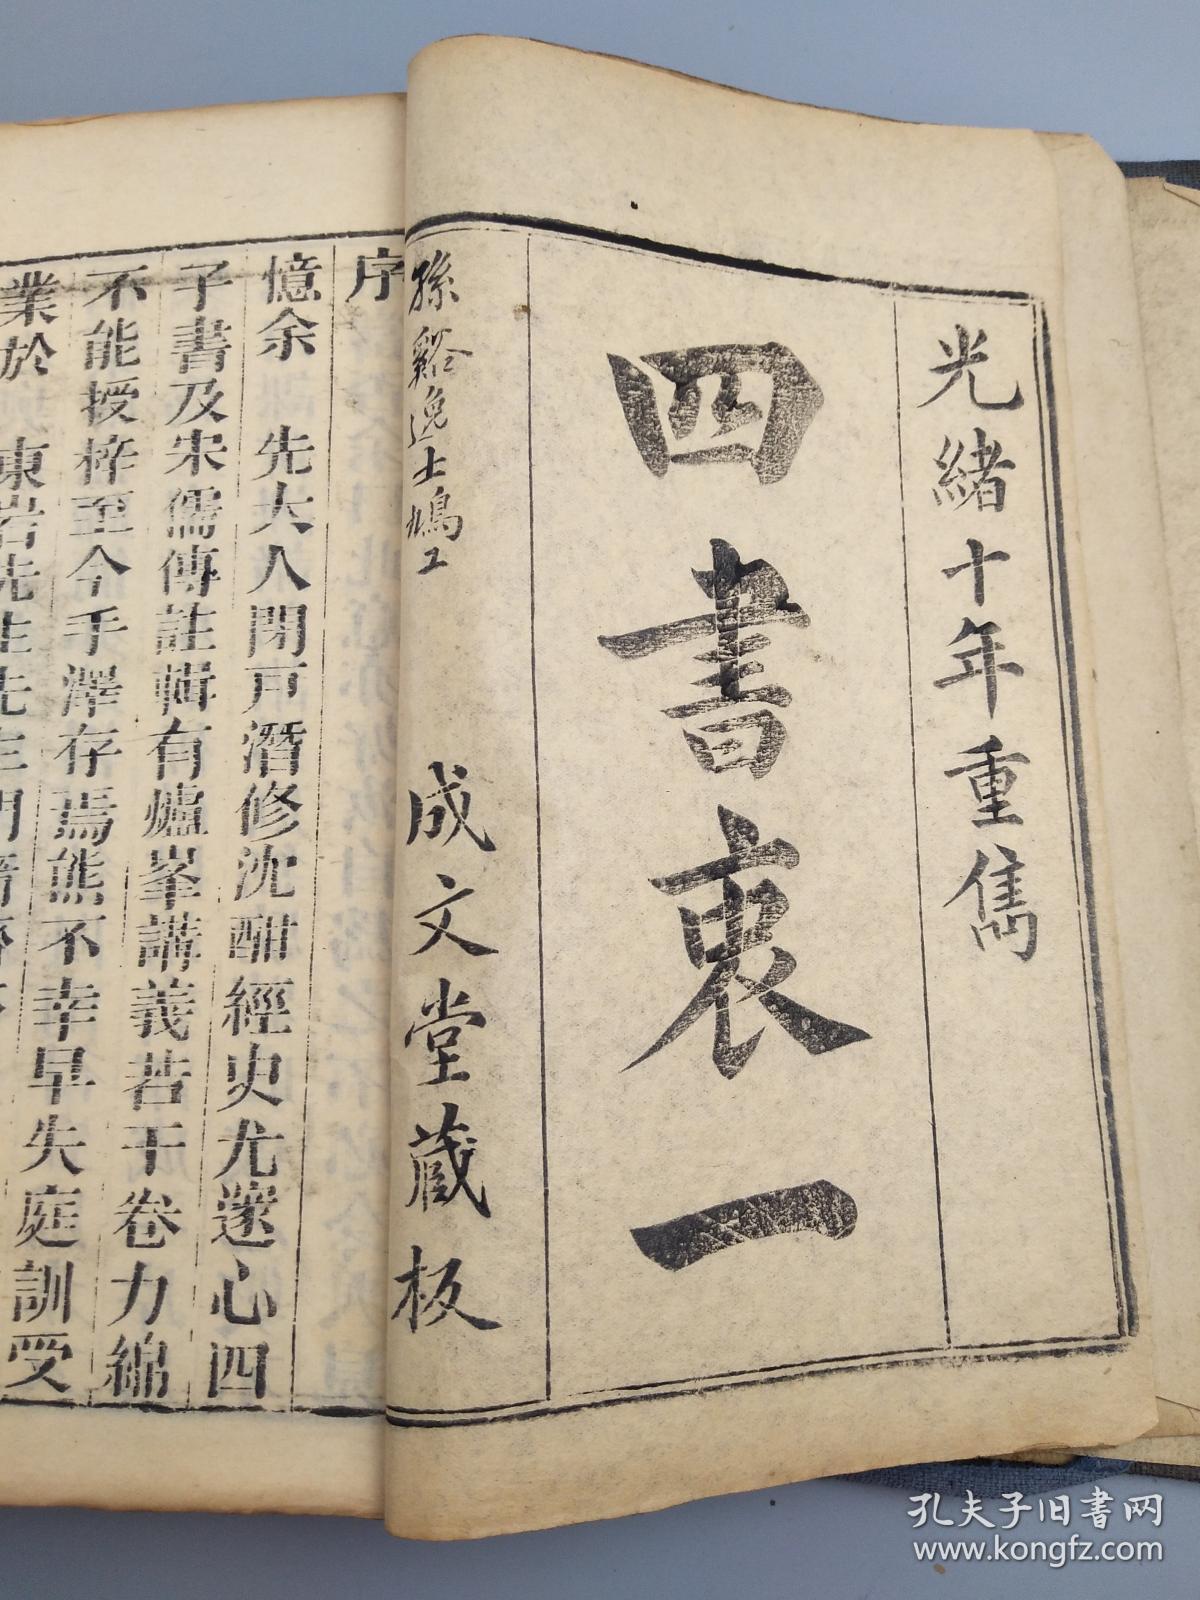 光緒十年重鐫
四書衷一
孫谿逸士鳩工
成文堂藏板
序
憶余先大人閉戶潛修沈酣經史尤邃心四
子書及宋儒傳註輯有爐峯講義若干卷力綿
不能授梓至今手澤存焉熊不幸早失庭訓受
業於東岩先生先生門
孔夫子旧书网
www.kongfz.com